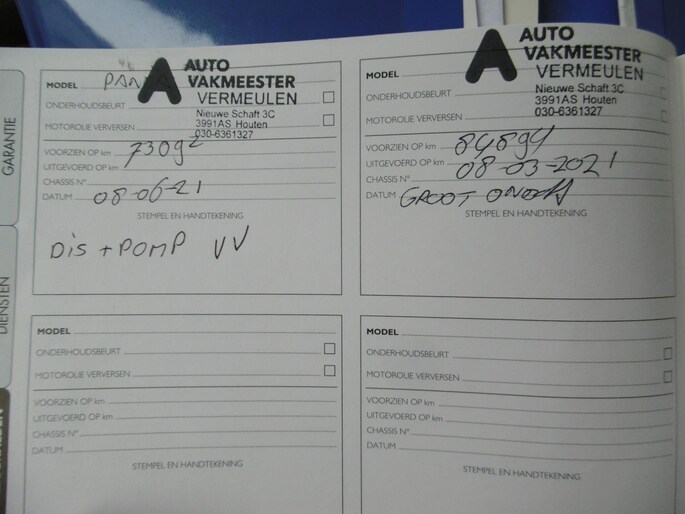 GARANTIE
DIENSTEN
AUTO
VAKMEESTER
VERMEULEN
Nieuwe Schaft 3C
3991AS Houten
030-6361327
MODEL
ONDERHOUDSBEURT
MOTOROLIE VERVERSEN
VOORZIEN OP km 73092
UITGEVOERD OP km
CHASSIS N°
DATUM 08-06-21
STEMPEL EN HANDTEKENING
DIS + POMP VV
AUTO
VAKMEESTER
VERMEULEN
Nieuwe Schaft 3C
3991AS Houten
030-6361327
MODEL
ONDERHOUDSBEURT
MOTOROLIE VERVERSEN
VOORZIEN OP km 84894
UITGEVOERD OP km 08-03-2021
CHASSIS N°
DATUM GROOT
STEMPEL EN HANDTEKENING
MODEL
ONDERHOUDSBEURT
MOTOROLIE VERVERSEN
VOORZIEN OP km
UITGEVOERD OP km
CHASSIS N°
DATUM
STEMPEL EN HANDTEKENING
MODEL
ONDERHOUDSBEURT
MOTOROLIE VERVERSEN
VOORZIEN OP km
UITGEVOERD OP km
CHASSIS N°
DATUM
STEMPEL EN HANDTEKENING